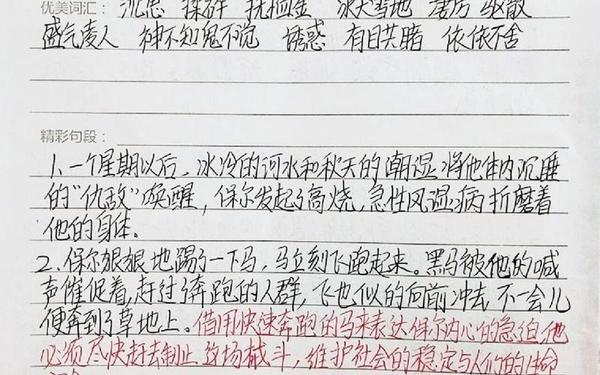 优美词汇：沉思 抚恤金 冰天雪地 唐厉 驱散
盛气凌人 神不知鬼不觉 诱惑 有目共睹 依依不舍
精彩句段：
1、一个星期以后，冰冷的河水和秋天的潮湿将他体内沉睡
的“仇敌”唤醒，保尔发起了高烧，急性风湿病折磨着
他的身体。
2、保尔狠狠地踢了一下马，马立刻飞跑起来。黑马被他的喊
声催促着，赶过了奔跑的人群，飞也似的向前冲去 不一会儿
便奔到了草地上。借用快速奔跑的马来表达保尔内心的急迫，他
必须尽快赶去制止这场械斗，维护社会的稳定与人们的生命